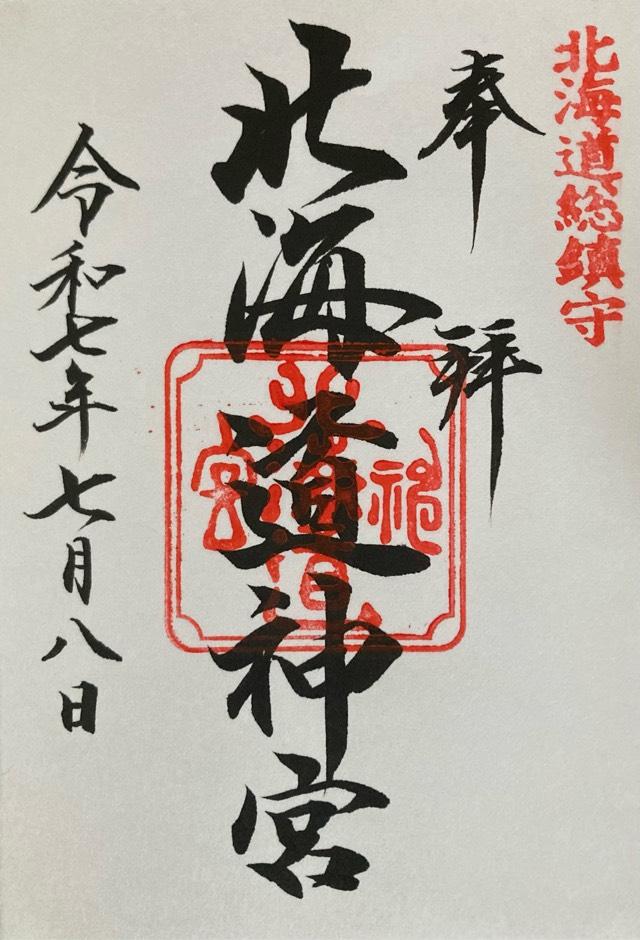 北海道総鎮守
奉拝
北海道神宮
令和七年七月八日